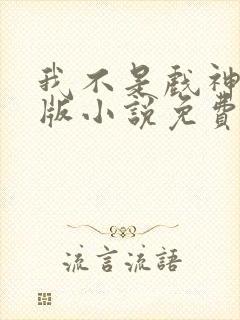 我不是戲神
版小說免費
流言流語